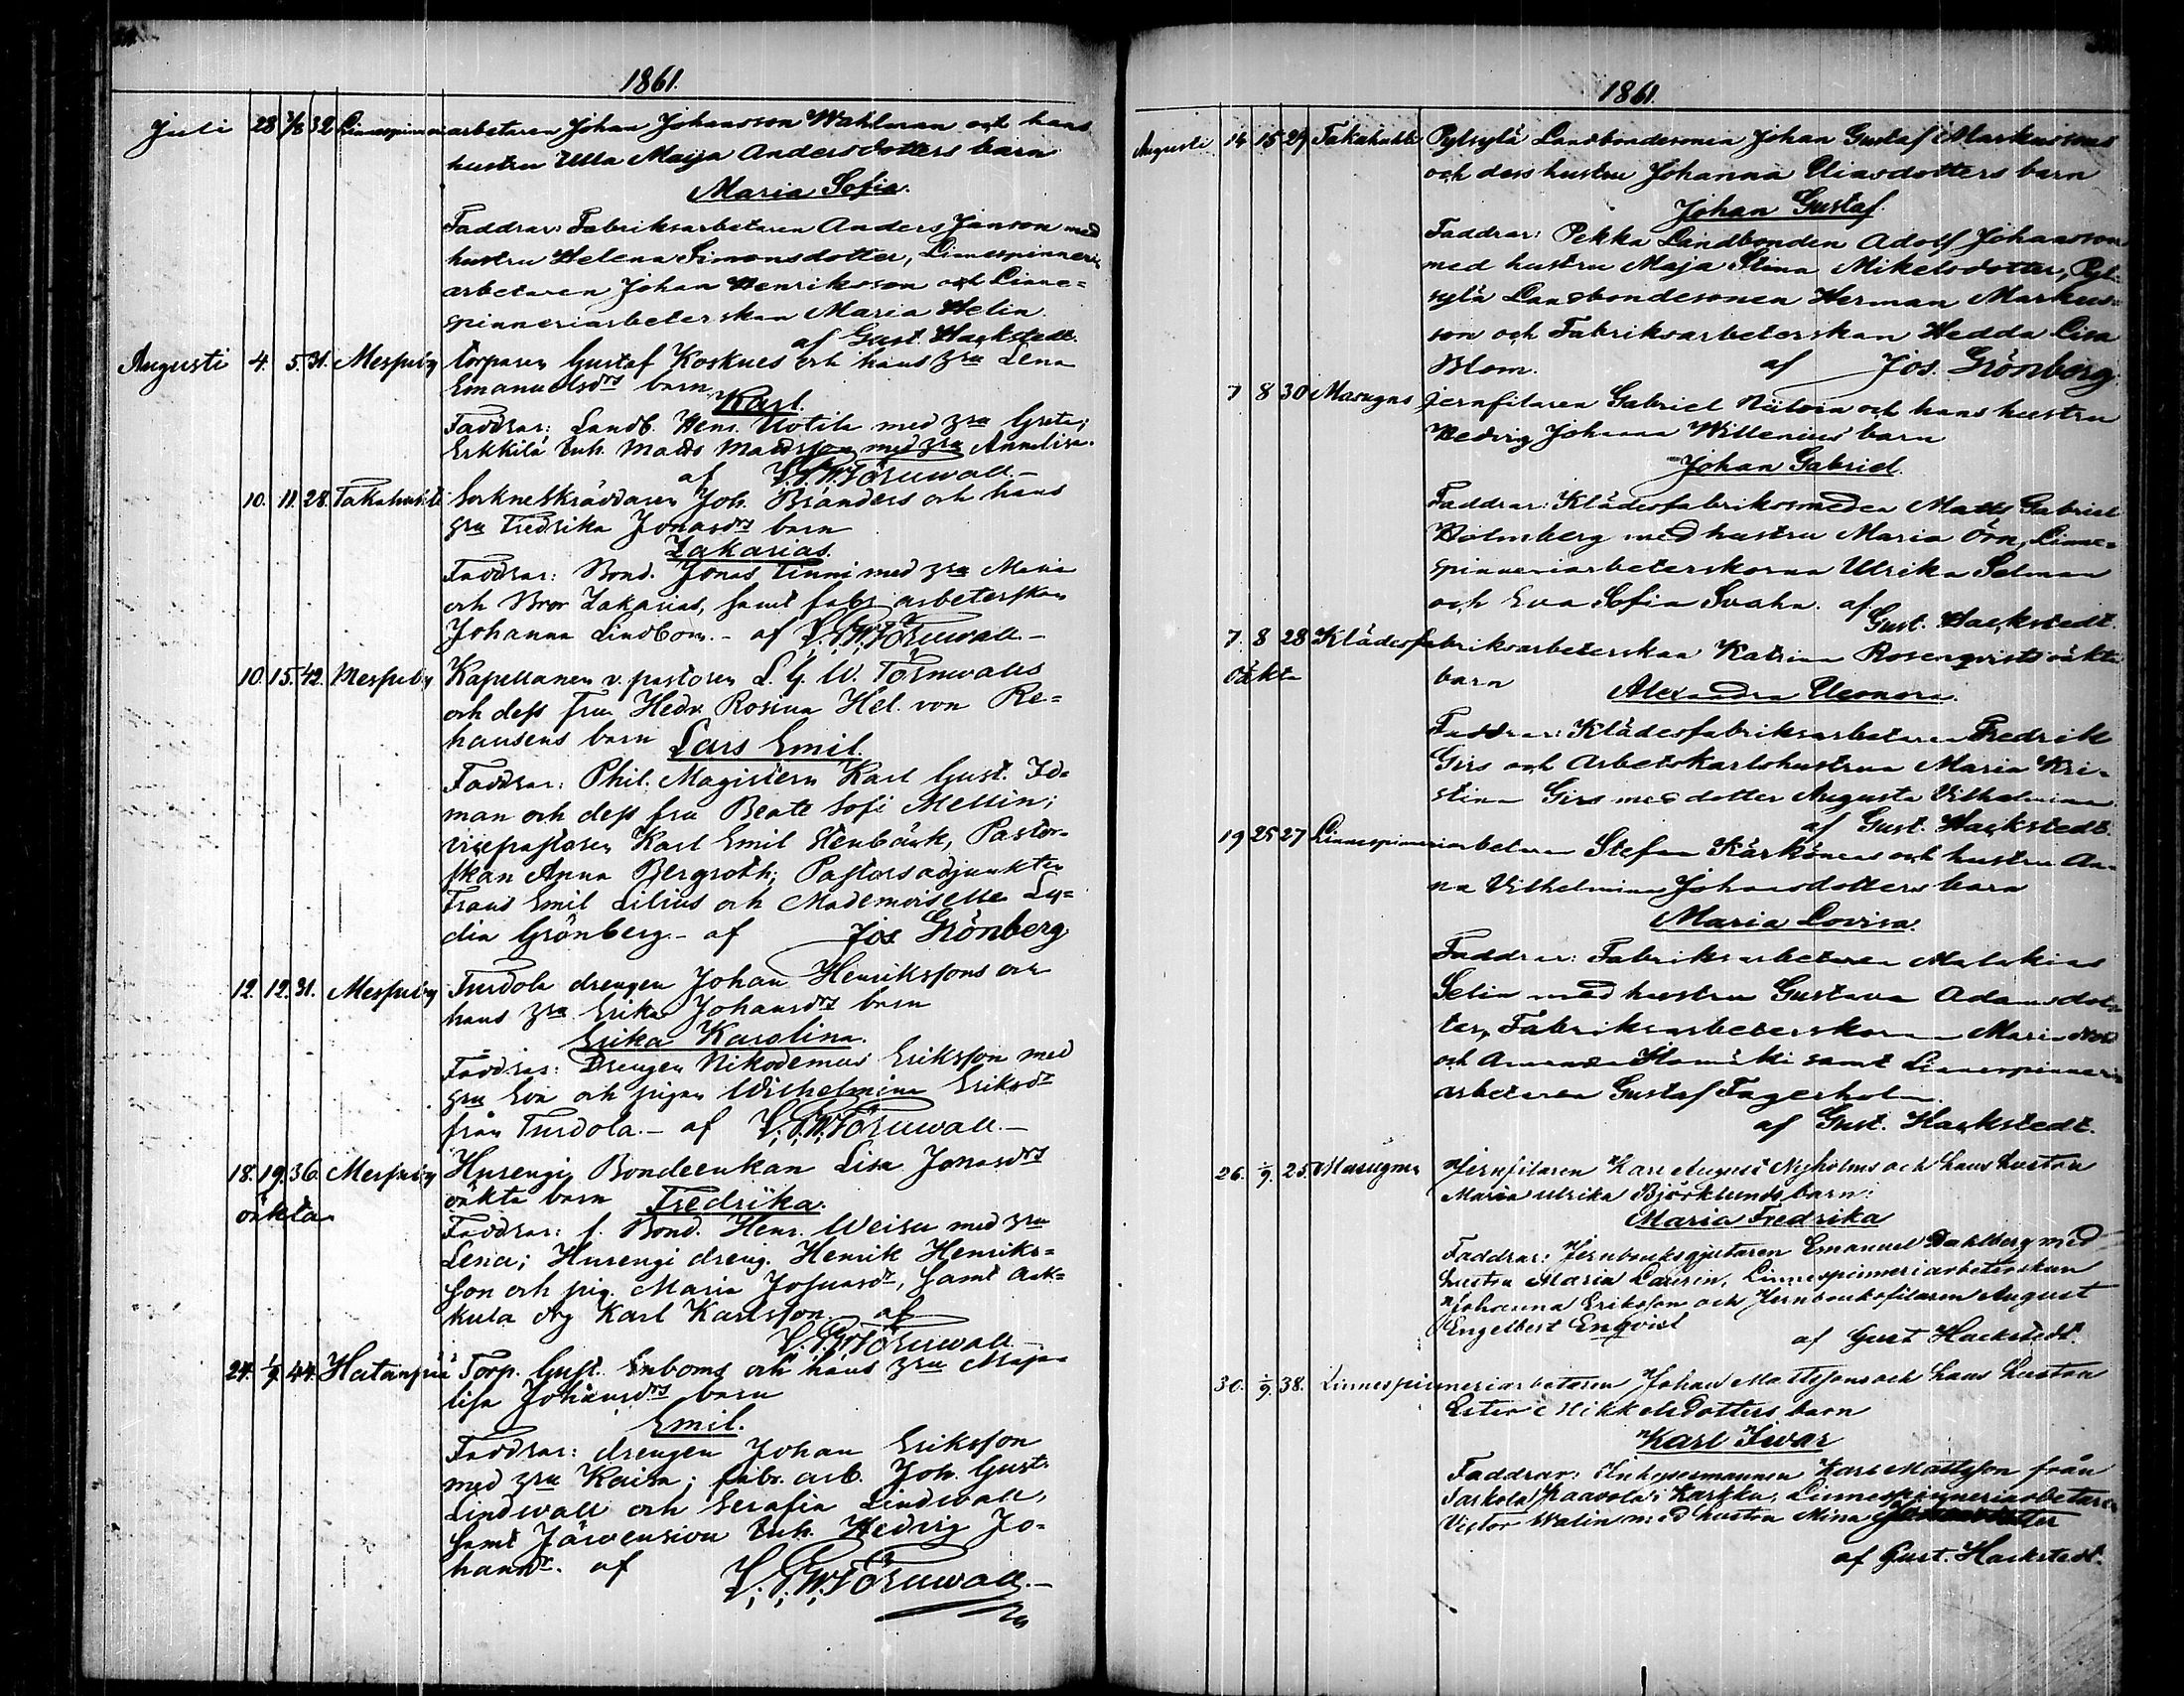 1861.
Juli 28 3/8 32 Linnespinneriarbetaren Johan Johansson Wahlman och hans
hustru Ulla Maija Andersdotters barn
Maria Sofia.
Faddrar: Fabriksarbetaren Anders Janson med
hustru Helena Simonsdotter, Linnespinneri
arbetaren Johan Henriksson och Linne=
spinneriarbeterskan Maria Helin
af Gust. Hackstedt.
Augusti 4. 5. 31. Messuby torparen Gustaf Koskues och hans hru Lena
Emanuelsdrs barn
Karl.
Faddrar: Landb. Henr. Uotila med hru Greta;
Erkkilä inh. Matts Mattsson med hru Annalisa.
af L.G.W. Törnwall.-
10. 11. 28. Takahuhti Sockneskräddaren Joh. Branders och hans
hru Fredrika Jonasdrs barn
Zakarias.
Faddrar: Bond. Jonas Tinni med hru Maria
och Bror Zakarias, samt fabr. arbeterskan
Johanna Lindbom.- af L.G.W. Törnwall.-
10. 15. 42. Messuby Kapellanen v. pastoren L. G. W. Törnwalls
och dess fru Hedv. Rosina Hel. von Re=
hausens barn Lars Emil.
Faddrar: Phil. Magistern Karl Gust. Id=
man och dess fru Beate Sofi Mellin;
vicepastoren Karl Emil Stenbäck, Pastor=
skan Anna Bergroth; Pastorsadjunkten
Frans Emil Lilius och Mademoiselle Ly=
dia Grönberg.- af Jos Grönberg
12. 12. 31. Messuby Turdola drengen Johan Henrikssons och
hans hru Erika Johansdrs barn
Erika Karolina.
Faddrar: Drengen Nikodemus Eriksson med
hru Eva och pigan Wilhelmina Eriksdr
från Turdola.- af L.G.W. Törnwall.-
18. 19. 36. Messuby Hurengi Bondeenkan Lisa Jonasdrs
oäkta oäkta barn Fredrika.
Faddrar: f. Bond. Henr. Weisu med hru
Lena; Hurengi dreng. Henrik Henriks=
son och pig. Maria Josuasdr, samt
kula drg Karl Karlsson af
L.G.W. Törnwall.-
24. 1/9. 44. Hatanpää Torp. Gust. Enboms och hans hru Maja
lisa Johansdrs barn
Emil.
Faddrar: drengen Johan Eriksson
med hru Kaisa; fabr. arb. Joh. Gust.
Lindwall och Serafia Lindwall,
samt Järvensivu inh. Hedvig Jo=
hansdr. af L.G.W. Törnwall.-
1861.
Augusti 14 15 29 Takahuhti Pylsylä Landbondesonen Johan Gustaf Markussons
och dess hustru Johanna Eliasdotters barn
Johan Gustaf.
Faddrar: Pekka Landbonden Adolf Johansson
med hustru Maja Stina Mikelsdotter, Pyl=
sylä Landbondesonen Herman Markus=
son och Fabriksarbeterskan Hedda Lisa
Blom. af Jos. Grönberg
7 8 30 Masugns jernfilaren Gabriel och hans hustru
Hedvig Johanna Willenius barn
Johan Gabriel.
Faddrar: Klädesfabrikssmeden Matts Gabriel
Holmberg med hustru Maria Örn, Linne=
spinneriarbeterskorna Ulrika Selman
och Eva Sofia Svahn. af
Gust. Hackstedt.
7. 8 28 Klädesfabriksarbeterskan Katrina Rosenqvists oäkta
oäkta barn Alexandra Eleonora.
Faddrar: Klädesfabriksarbetaren Fredrik
Girs och Arbetskarlshustrun Maria Kri=
stina Girs med dotter Augusta Vilhelmina
af Gust. Hackstedt
19 25 27 Linnespinneriarbetaren Stefan Kärkönens och hustru An=
na Vilhelmina Johansdotters barn
Maria Lovisa.
Faddrar: Fabriksarbetaren Malakias
Selin med hustru Gustava Adamsdot=
ter, Fabriksarbeterskorna Maria
och Amanda samt Linnespinneri
arbetaren Gustaf Fagerholm.
af Gust. Hackstedt.
26. 1/9. 25. Masugns Jernfilaren Karl August Nyholms och hans hustru
Maria Ulrika Björklunds barn:
Maria Fredrika
Faddrar: Jernbruksgjutaren Emanuel Dahlberg med
hustru Maria Laurin, Linnespinneriarbeterskan
Johanna Eriksson och Jernbruksfilaren August
Engelbert Enqvist
af Gust Hackstedt.
30. 1/9. 38. Linnespinneriarbetaren Johan Mattssons och hans hustru
Ester Mikkelsdotters barn
Karl Iwar
Faddrar: Inhysesmannen Karl Mattsson från
Karkku, Linnespinneriarbetaren
Victor Walin med hustru Mina
af Gust. Hackstedt.